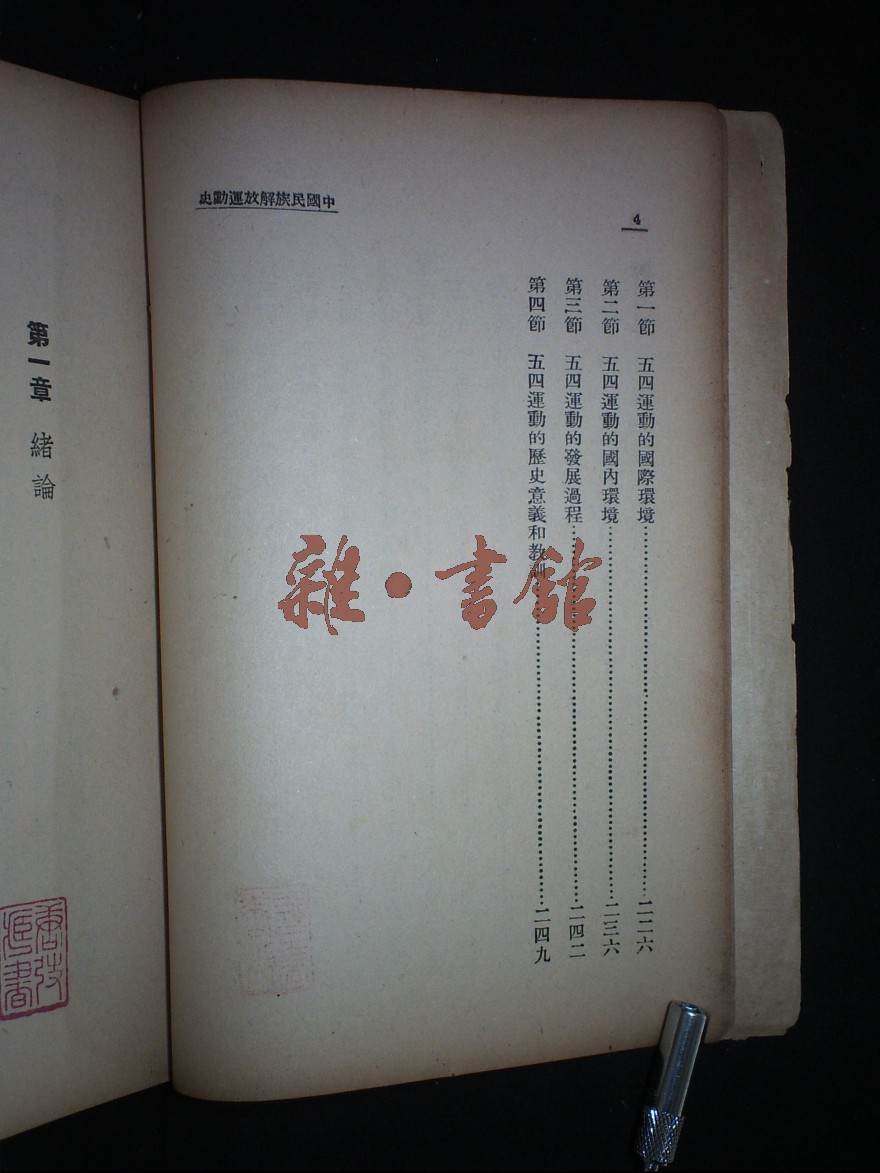 中國民族解放運動史
4
第一節　五四運動的國際環境……二二六
第二節　五四運動的國內環境……二三六
第三節　五四運動的發展過程……二四二
第四節　五四運動的歷史意義和教訓……二四九
第一章　緒論
唐弢藏書
雜·書館